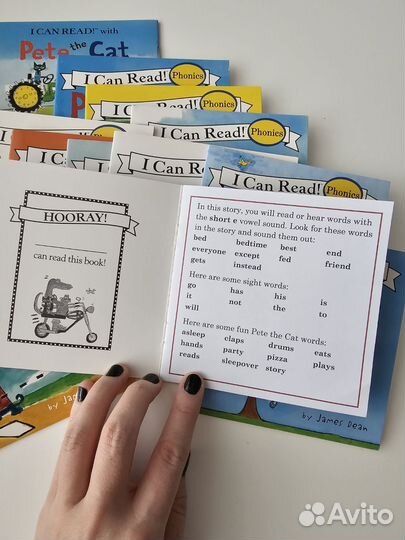 I CAN READ!™ with
Pete the Cat
I Can Read! Phonics
Phonics
I Can Read! Phonics
I Can Read! Phonics
I Can Read! Phonics
HOORAY!
can read this book!
In this story, you will read or hear words with
the short e vowel sound. Look for these words
in the story and sound them out:
bed bedtime best end
everyone except fed friend
gets instead
Here are some sight words:
go has his is
it not the to
will
Here are some fun Pete the Cat words:
asleep claps drums eats
hands party pizza plays
reads sleepover story
by James Dean
by Ja
Avito